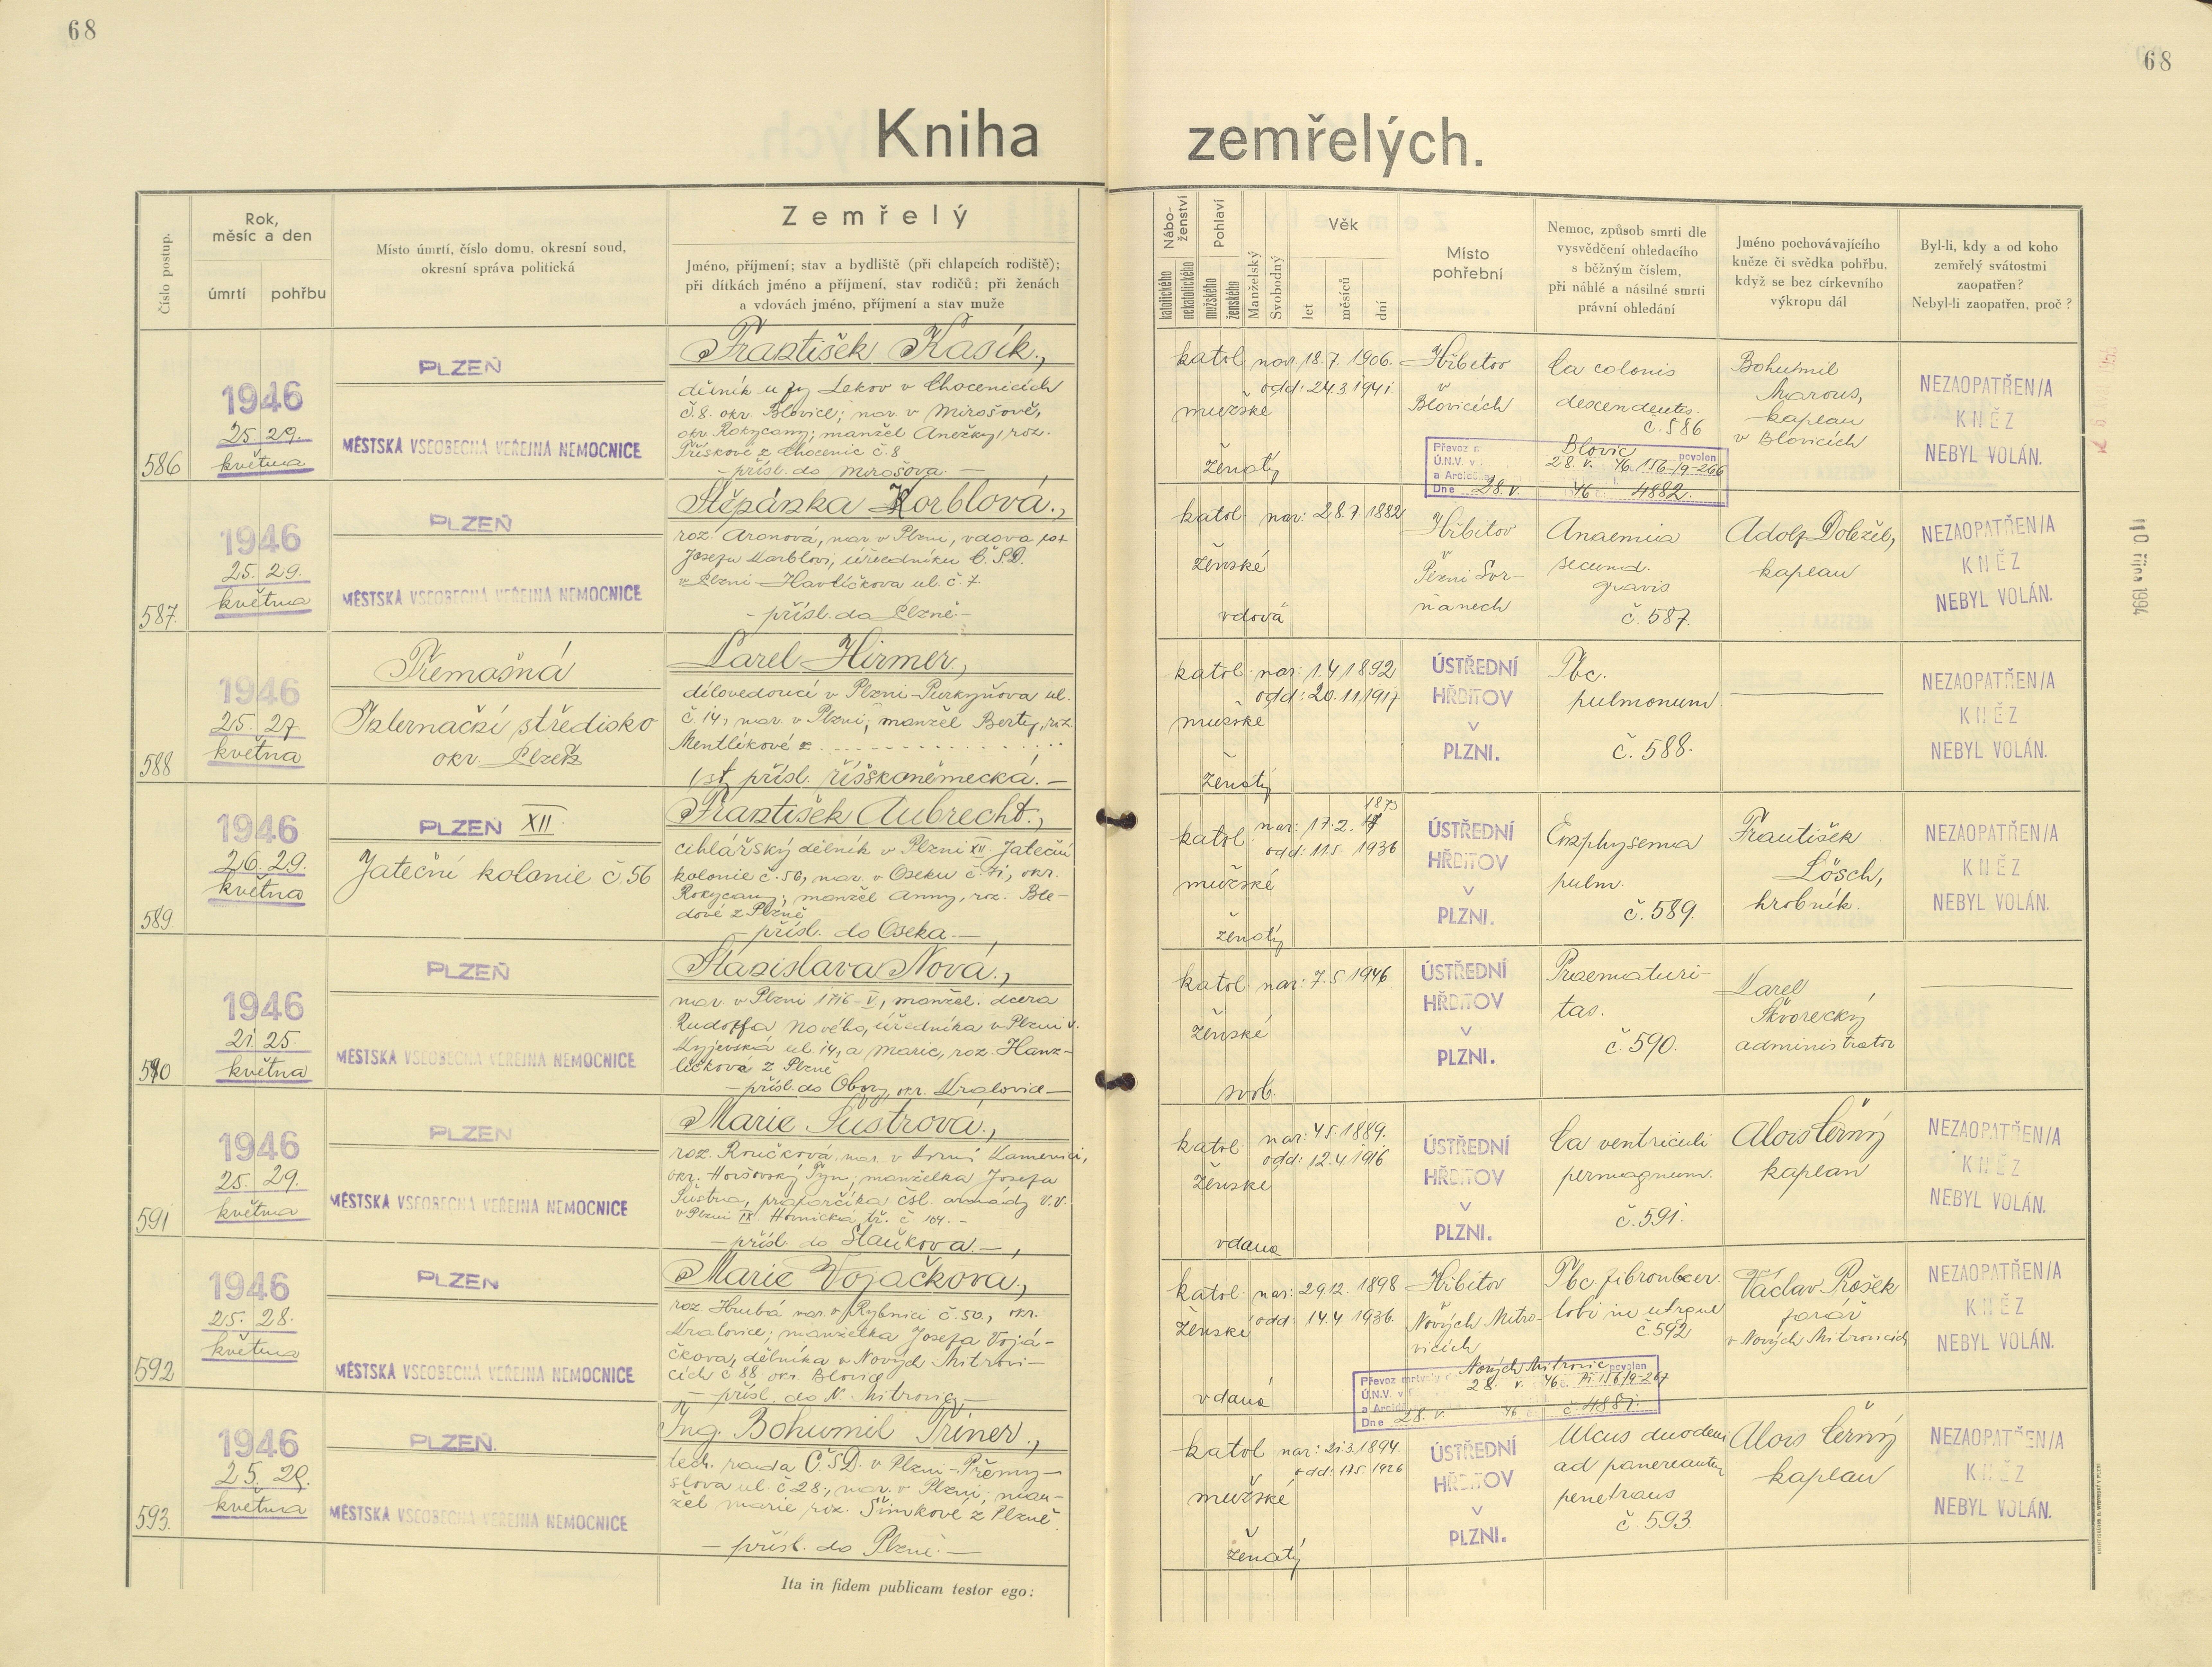 68
68
Kniha zemřelých.
Číslo postup.
Rok, měsíc a den
úmrtí
pohřbu
Místo úmrtí, číslo domu, okresní soud,
okresní správa politická
Zemřelý
Jméno, příjmení; stav a bydliště (při chlapcích rodiště);
při dítkách jméno a příjmení, stav rodičů; při ženách
a vdovách jméno, příjmení a stav muže
Nábo-
ženství
katolického
nekatolického
Pohlaví
mužského
ženského
Manželský
Svobodný
Věk
let
měsíců
dní
Místo
pohřební
Nemoc, způsob smrti dle
vysvědčení ohledacího
s běžným číslem,
při náhlé a násilné smrti
právní ohledání
Jméno pochovávajícího
kněze či svědka pohřbu,
když se bez církevního
výkropu dál
Byl-li, kdy a od koho
zemřelý svátostmi
zaopatřen?
Nebyl-li zaopatřen, proč?
586
1946
25. 29.
května
PLZEŇ
MĚSTSKÁ VŠEOBECNÁ VEŘEJNÁ NEMOCNICE
František Kasík.,
dělník u fy Lekov v Chocenicích
č. 8. okr. Blovice; nar. v Mirošově,
okr. Rokycany; manžel Anežky, roz.
Příškové z Chocenic č. 8
- přísl. do Mirošova. -
katol.
mužské
ženatý
nar. 18. 7. 1906.
odd: 24.3.1941.
Hřbitov
v
Blovicích
Ca colonis
descendentes.
č. 586
Bohumil
Marous,
kaplan
v Blovicích
NEZAOPATŘEN/A
KNĚZ
NEBYL VOLÁN.
Převoz
Blovic
povolen
Ú.N.V. v
28. V. 46. 156-/9-266
a Arcidě
Dne 28. V. 46 4882.
587.
1946
25. 29.
května
PLZEŇ
MĚSTSKÁ VŠEOBECNÁ VEŘEJNÁ NEMOCNICE
Štěpánka Korblová.,
roz. Aronová, nar. v Plzni, vdova po
Josefu Korblovi, úředníku Č.S.D.
v Plzni-Havlíčkova ul. č. 7.
- přísl. do Plzně -
katol.
ženské
vdova
nar: 28.7.1882
Hřbitov
v
Plzni Skvr-
ňanech
Anaemia
secund.
gravis
č. 587.
Adolf Doležel,
kaplan
NEZAOPATŘEN/A
KNĚZ
NEBYL VOLÁN.
588
1946
25. 27.
května
Třemošná
Internační středisko
okr. Plzeň
Karel Hirmer.,
dílovedoucí v Plzni-Purkyňova ul.
č. 14, nar. v Plzni; manžel Berty, roz.
Mentlíkové z
st. přísl. říšskoněmecká. -
katol.
mužské
ženatý
nar: 1.4.1892
odd: 20.11.1917
ÚSTŘEDNÍ
HŘBITOV
V
PLZNI.
Tbc.
pulmonum
č. 588.
NEZAOPATŘEN/A
KNĚZ
NEBYL VOLÁN.
589
1946
26. 29.
května
PLZEŇ XII.
Jateční kolonie č. 56
František Aubrecht.,
cihlářský dělník v Plzni XII. Jateční
kolonie č. 56, nar. v Oseku č. 71, okr.
Rokycany; manžel Anny, roz. Ble-
dové z Plzně
- přísl. do Oseka. -
katol.
mužské
ženatý
nar: 17. 2. 1873
odd: 11.5. 1936
ÚSTŘEDNÍ
HŘBITOV
V
PLZNI.
Emphysema
pulm.
č. 589.
František
Lösch,
hrobník.
NEZAOPATŘEN/A
KNĚZ
NEBYL VOLÁN.
590
1946
21. 25.
května
PLZEŇ
MĚSTSKÁ VŠEOBECNÁ VEŘEJNÁ NEMOCNICE
Stanislava Nová.,
nar. v Plzni 1716-V, manžel. dcera
Rudolfa Nového, úředníka v Plzni v.
Kyjevská ul. 14, a Marie, roz. Hanz-
líčková z Plzně
- přísl. do Obory, okr. Kralovice -
katol.
ženské
svob.
nar: 7. 5. 1946
ÚSTŘEDNÍ
HŘBITOV
V
PLZNI.
Praematuri-
tas.
č. 590.
Karel
Škvorecký
administrator
591
1946
25. 29.
května
PLZEŇ
MĚSTSKÁ VŠEOBECNÁ VEŘEJNÁ NEMOCNICE
Marie Šustrová.,
roz. Roučková, nar. v Horní Kamenici,
okr. Horšovský Týn; manželka Josefa
Šustra, praporčíka čsl. armády v.v.
v Plzni IX. Hornická tř. č. 104. -
- přísl. do Staňkova. -
katol.
ženské
vdaná
nar: 4.5.1889.
odd: 12.4.1916
ÚSTŘEDNÍ
HŘBITOV
V
PLZNI.
Ca ventriculi
permagnum.
č. 591.
Alois Černý
kaplan
NEZAOPATŘEN/A
KNĚZ
NEBYL VOLÁN.
592
1946
25. 28.
května
PLZEŇ
MĚSTSKÁ VŠEOBECNÁ VEŘEJNÁ NEMOCNICE
Marie Vojáčková.,
roz. Hrubá nar. v Rybnici č. 50., okr.
Kralovice; manželka Josefa Vojá-
čkova, dělníka v Nových Mitrovi-
cích č. 88 okr. Blovice
- přísl. do N. Mitrovic -
katol.
ženské
vdaná
nar: 29.12. 1898
odd: 14.4 1936.
Hřbitov
v
Nových Mitro-
vicích
Tbc fibroulcer.
lobi in utroque
č. 592
Václav Rošek
farář
v Nových Mitrovicích
NEZAOPATŘEN/A
KNĚZ
NEBYL VOLÁN.
Převoz mrtvoly
Nových Mitrovic
povolen
Ú.N.V. v
28. V. 46 č. Pí 156/9-267
a Arcidě
Dne 28. V. 46 č. 4881.
593.
1946
25. 29.
května
PLZEŇ.
MĚSTSKÁ VŠEOBECNÁ VEŘEJNÁ NEMOCNICE
Ing. Bohumil Triner.,
tech. rada Č.S.D. v Plzni-Přemy-
slova ul. č 28., nar. v Plzni; man-
žel Marie roz. Šimkové z Plzně.
- přísl. do Plzně. -
katol
mužské
ženatý
nar: 21.3.1894.
odd: 17.5. 1926
ÚSTŘEDNÍ
HŘBITOV
V
PLZNI.
Ulcus duodeni
ad pancreauten
penetrans
č. 593.
Alois Černý
kaplan
NEZAOPATŘEN/A
KNĚZ
NEBYL VOLÁN.
Ita in fidem publicam testor ego:
10 října 1994